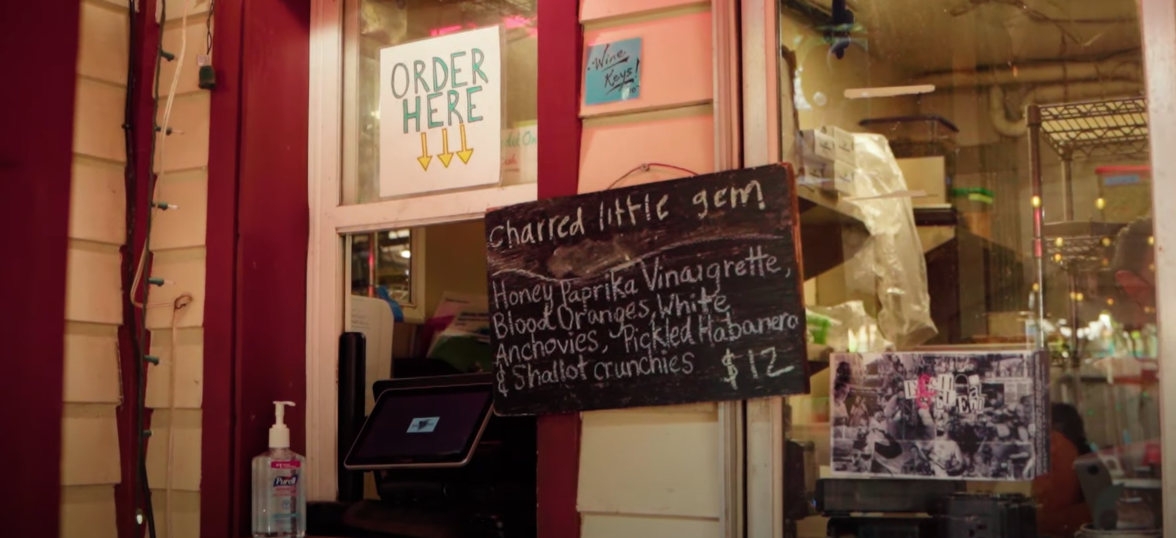 ORDER
HERE
Wine
Keys!
charred little gem
Honey Paprika Vinaigrette,
Blood Oranges, White
Anchovies, Pickled Habanero
& Shallot crunchies $12
Purell